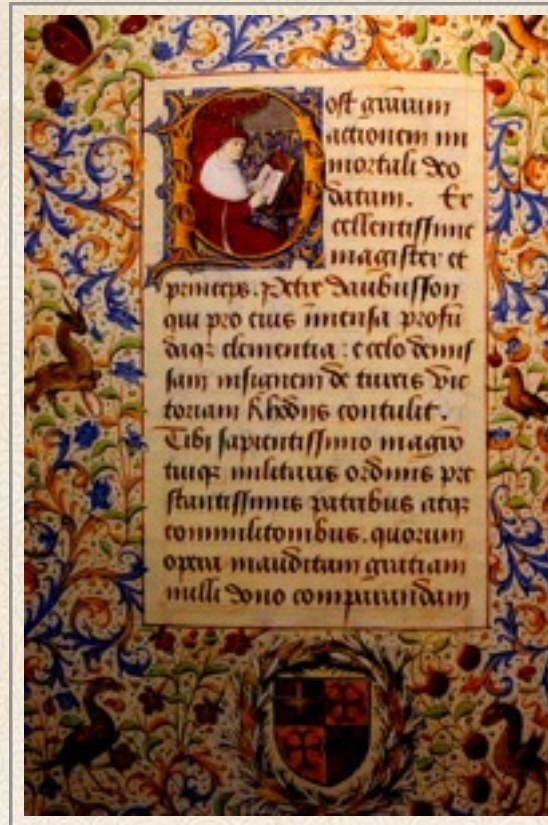 Post gratiarum
actionem im
mortali deo
datam. Ex
cellentissime
magister et
princeps. Petre daubusson
qui pro eius inmensa profu
daqꝫ clementia : e celo demis
sam insignem de turcis vic
toriam Rhodijs contulit.
Tibi sapientissimo magro
tuiqꝫ militaris ordinis pre
stantissimis patribus atqꝫ
commilitonibus. quorum
opera mauditam gratiam
nulli dono comparandam